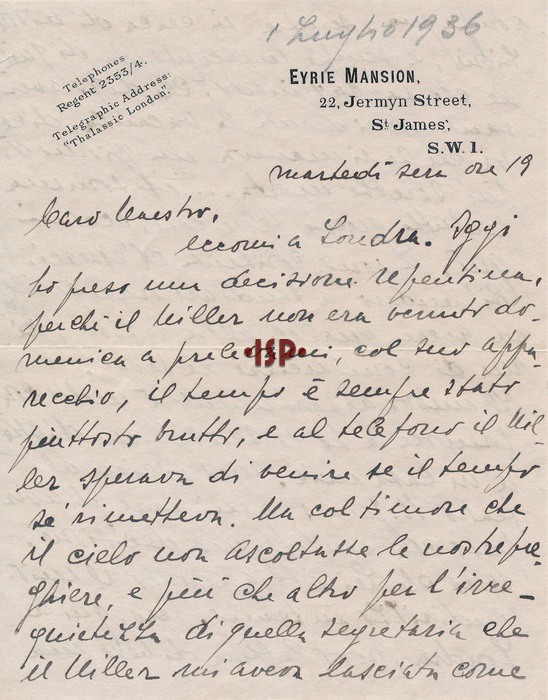 1 Luglio 1936
Telephones
Regent 2353/4.
Telegraphic Address:
"Thalassic London."
EYRIE MANSION,
22, Jermyn Street,
St James',
S.W.1.
martedì sera ore 19
Caro Maestro,
eccomi a Londra. Oggi
ho preso una decisione repentina,
perchè il Miller non era venuto do-
menica a prelevarmi, col suo appa-
•ISP•
recchio, il tempo è sempre stato
piuttosto brutto, e al telefono il Mil-
ler sperava di venire se il tempo
se rimetteva. Ma col timore che
il cielo non ascoltasse le nostre pre-
ghiere, e più che altro per l'irre-
quietezza di quella segretaria che
il Miller mi aveva lasciata come